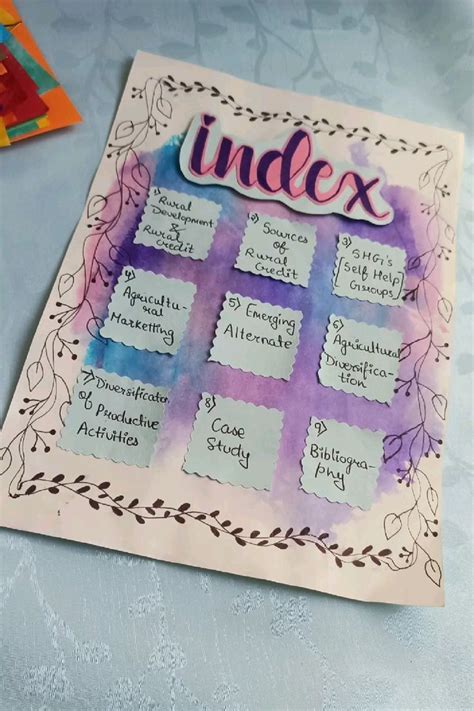 index
1) Rural
Development
&
Rural
Credit
2) Sources
of
Rural
Credit
3) SHG's
[Self Help
Groups]
4)
Agricultu-
ral
Marketting
5) Emerging
Alternate
6)
Agricultural
Diversifica-
tion
7)
Diversification
of Productive
Activities
8)
Case
Study
9)
Bibliogra-
phy